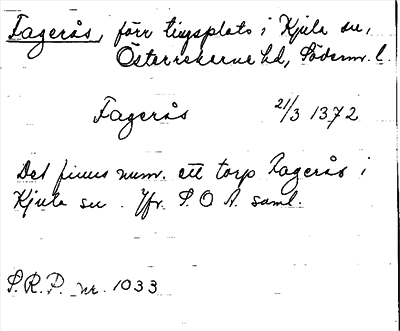 Fagerås, förr tingsplats i Kjula sn,
Österrekarne hd, Söderm. l.
Fagerås 21/3 1372
Det finns num. ett torp Lagerås i
Kjula sn. Jfr. S. O. A. saml.
S.R.P. nr. 1033